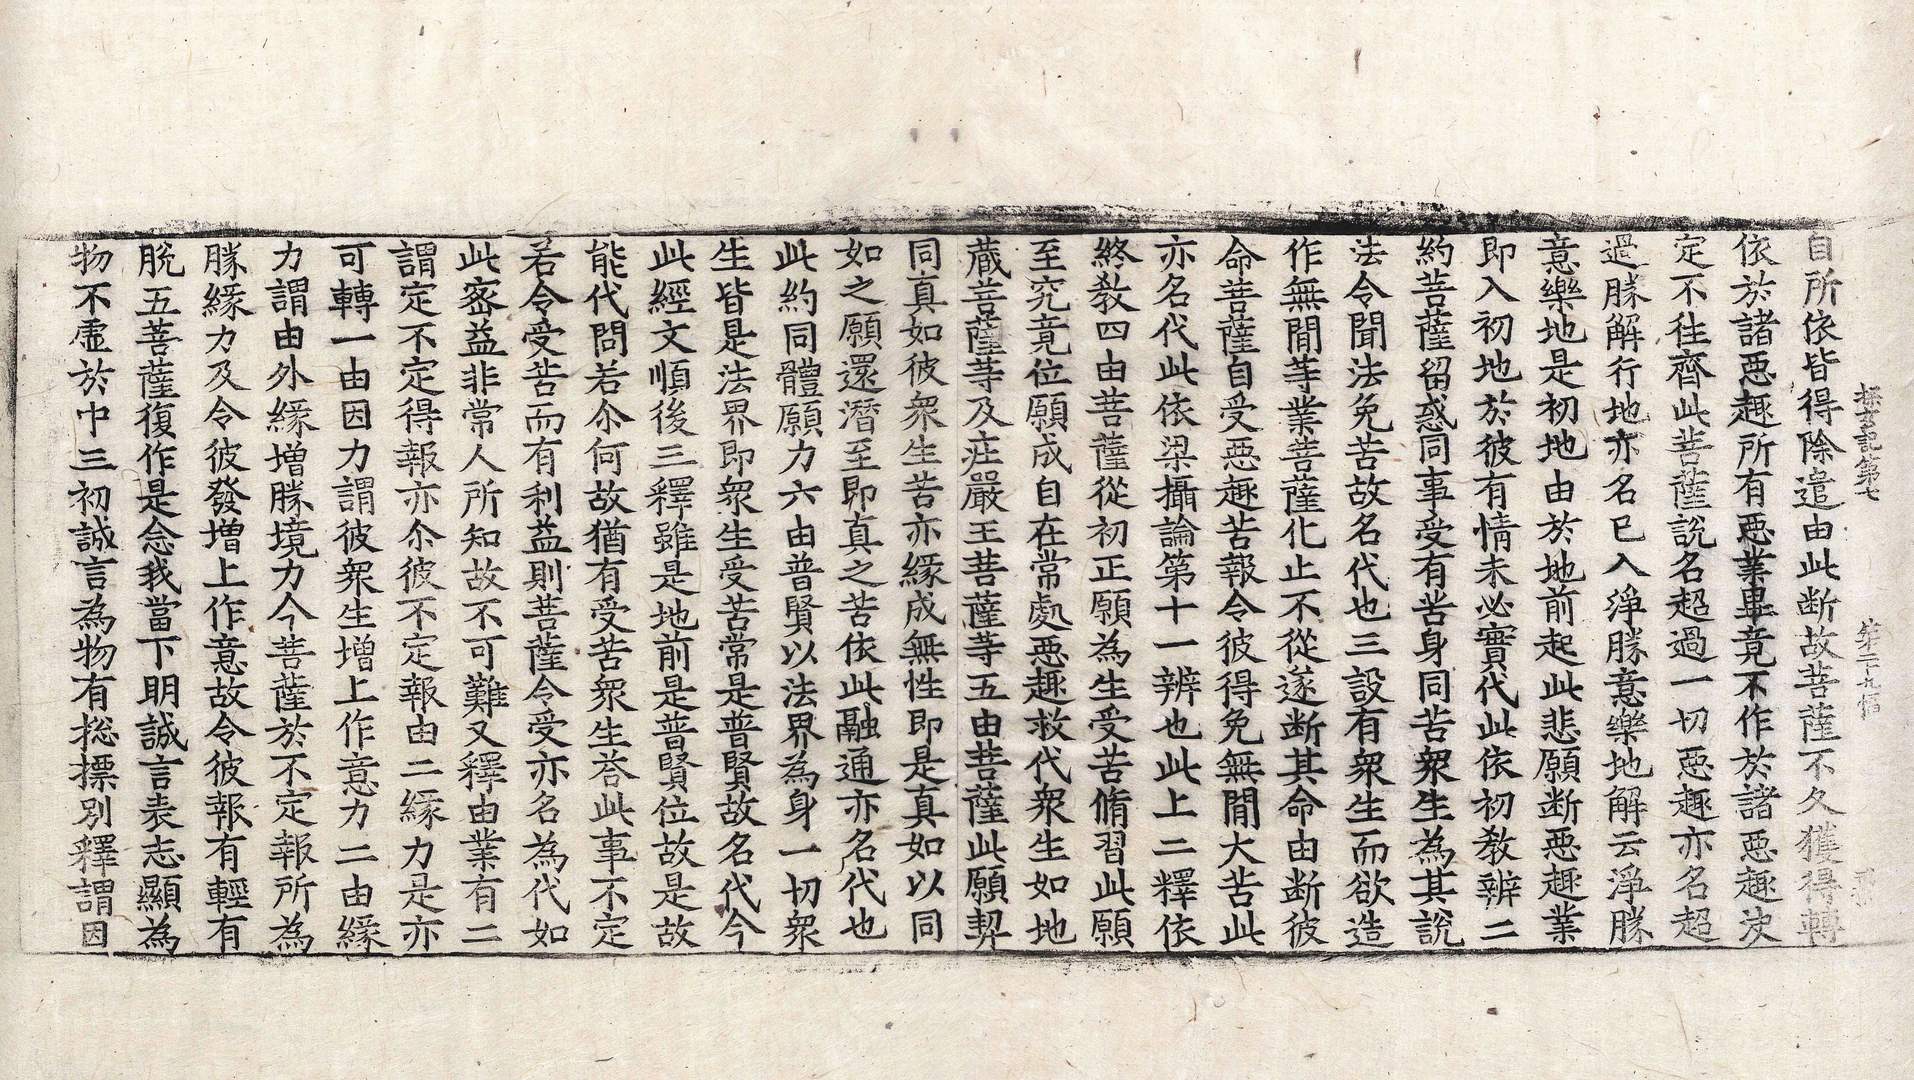 探玄記第七　第二十九幅
自所依皆得除遣由此断故菩薩不久獲得轉
依於諸惡趣所有惡業畢竟不作於諸惡趣决
定不徃齊此菩薩說名超過一切惡趣亦名超
過勝解行地亦名已入淨勝意樂地解云淨勝
意樂地是初地由於地前起此悲願断惡趣業
即入初地於彼有情未必實代此依初教辨二
約菩薩留惑同事受有苦身同苦衆生為其說
法令聞法免苦故名代也三設有衆生而欲造
作無閒等業菩薩化止不從遂断其命由断彼
命菩薩自受惡趣苦報令彼得免無閒大苦此
亦名代此依梁攝論第十一辨也此上二釋依
終教四由菩薩從初正願為生受苦脩習此願
至究竟位願成自在常處惡趣救代衆生如地
藏菩薩等及庄嚴王菩薩等五由菩薩此願契
同真如彼衆生苦亦緣成無性即是真如以同
如之願還潛至即真之苦依此融通亦名代也
此約同體願力六由普賢以法界為身一切衆
生皆是法界即衆生受苦常是普賢故名代今
此經文順後三釋雖是地前是普賢位故是故
能代問若尒何故猶有受苦衆生答此事不定
若令受苦而有利益則菩薩令受亦名為代如
此密益非常人所知故不可難又釋由業有二
謂定不定得報亦尒彼不定報由二緣力是亦
可轉一由因力謂彼衆生增上作意力二由緣
力謂由外緣增勝境力今菩薩於不定報所為
勝緣力及令彼發增上作意故令彼報有輕有
脫五菩薩復作是念我當下明誠言表志顯為
物不虛於中三初誠言為物有捴摽別釋謂因